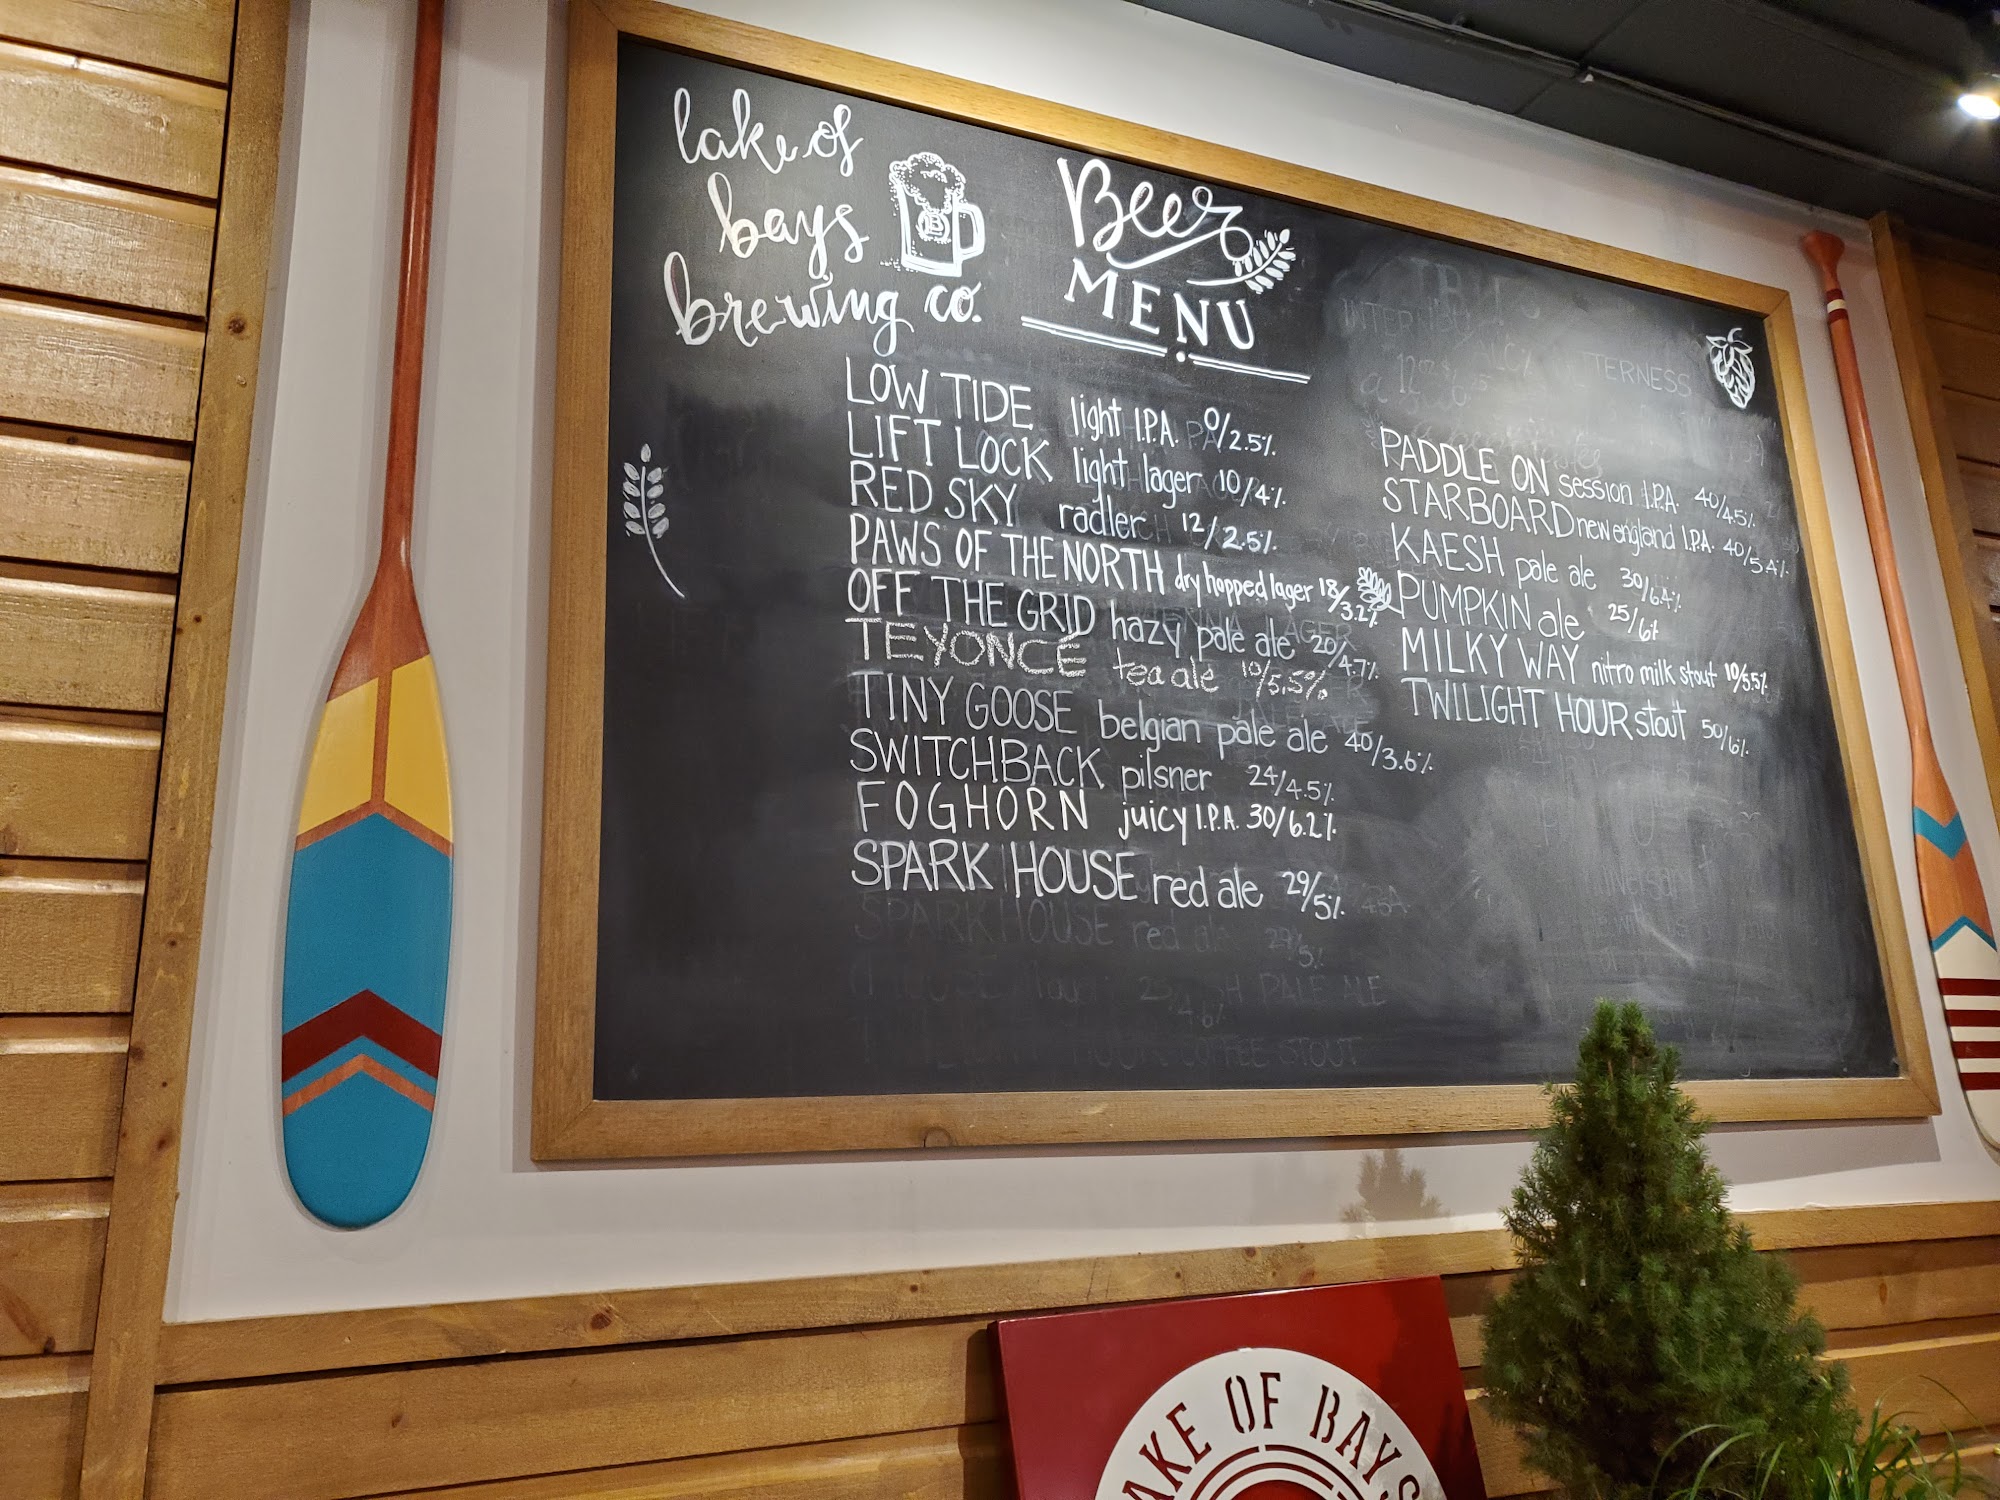 lake of
bays
brewing co.
Beer
MENU
LOW TIDE light I.P.A. 0/2.5%
LIFT LOCK light lager 10/4%
RED SKY radler 12/2.5%
PAWS OF THE NORTH dry hopped lager 18/3.2%
OFF THE GRID hazy pale ale 20/4.7%
TEYONCÉ tea ale 10/5.5%
TINY GOOSE belgian pale ale 40/3.6%
SWITCHBACK pilsner 24/4.5%
FOGHORN juicy I.P.A. 30/6.2%
SPARK HOUSE red ale 29/5%
SPARK HOUSE red 29/5%
PALE ALE
COFFEE STOUT
PADDLE ON session I.P.A. 40/4.5%
STARBOARD new england I.P.A. 40/5.4%
KAESH pale ale 30/6.4%
PUMPKIN ale 25/6%
MILKY WAY nitro milk stout 10/5.5%
TWILIGHT HOUR stout 50/6%
LAKE OF BAYS